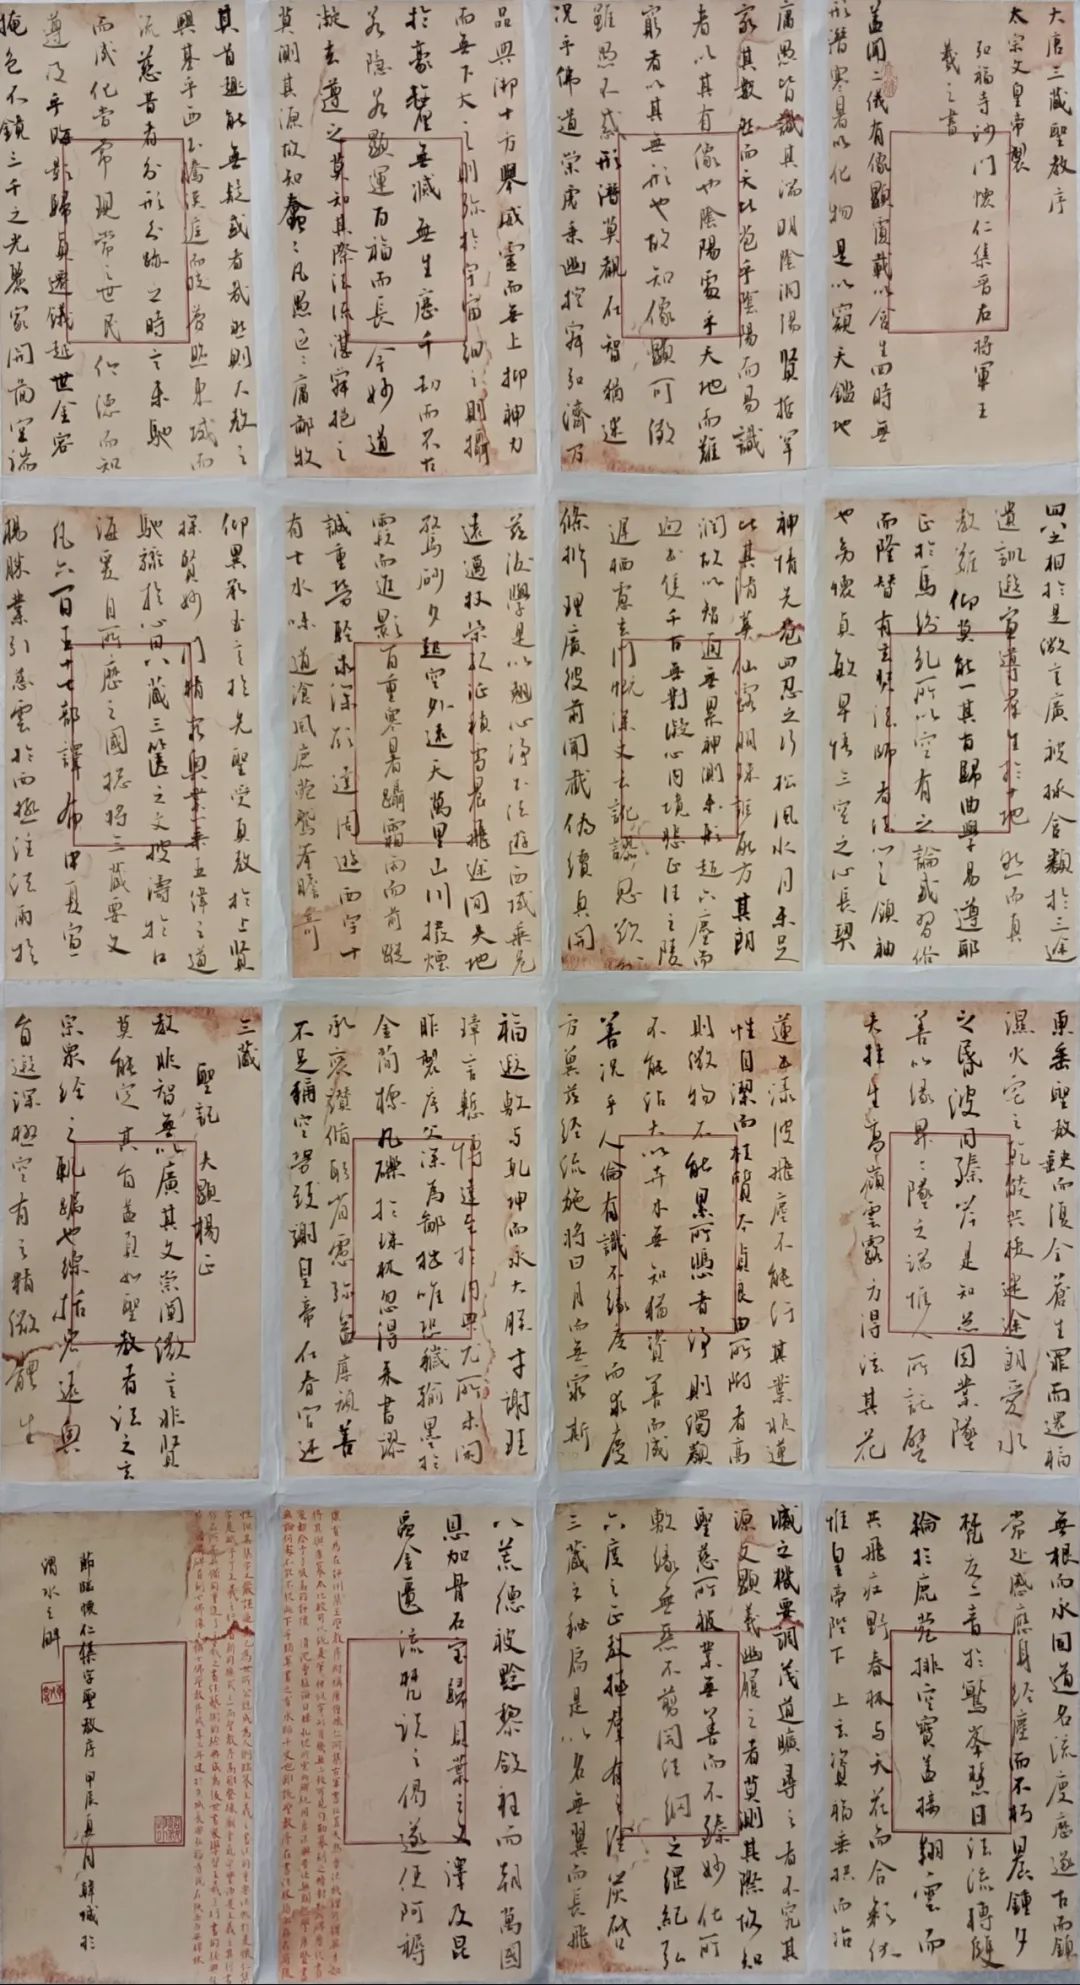 大唐三藏聖教序
太宗文皇帝製
弘福寺沙門懷仁集晉右將軍王
羲之書
蓋聞二儀有像顯覆載以含生四時無
形潛寒暑以化物是以窺天鑑地
庸愚皆識其端明陰洞陽賢哲罕
窮其數然而天地苞乎陰陽而易識
者以其有像也陰陽處乎天地而難
窮者以其無形也故知像顯可徵
雖愚不惑形潛莫覩在智猶迷
況乎佛道崇虛乘幽控寂弘濟万
品典御十方舉威靈而無上抑神力
而無下大之則彌於宇宙細之則攝
於豪釐無滅無生歷千劫而不古
若隱若顯運百福而長今妙道
凝玄遵之莫知其際法流湛寂挹之
莫測其源故知蠢々凡愚區々庸鄙投
其旨趣能無疑或者哉然則大教之
興基乎西土騰漢庭而皎夢照東域而
流慈昔者分形分跡之時言未馳
而成化當常現常之世民仰德而知
遵及乎晦影歸真遷儀越世金容
掩色不鏡三千之光麗象開圖空端
四八之相於是微言廣被拯含類於三途
遺訓遐宣導群生於十地然而真
教難仰莫能一其旨歸曲學易遵耶
正於焉紛糺所以空有之論或習俗
而隆替有玄奘法師者法門之領袖
也幼懷貞敏早悟三空之心長契
神情先苞四忍之行松風水月未足
比其清華仙露明珠詎能方其朗
潤故以智通無累神測未形超六塵而
迥出隻千古無對凝心內境悲正法之陵
遲栖慮玄門慨深文之訛謬思欲分
條析理廣彼前聞截偽續真開
茲後學是以翹心淨土法遊西域乘危
遠邁杖策孤征積雪晨飛途間失地
驚砂夕起空外迷天萬里山川撥煙
霞而進影百重寒暑躡霜雨而前蹤
誠重勞輕求深願達周遊西宇十
有七水味道飡風鹿菀鷲峯瞻奇
仰異承至言於先聖受真教於上賢
探賾妙門精窮奧業一乘五律之道
馳驟於心田八藏三篋之文波濤於口
海爰自所歷之國總將三藏要文
凡六百五十七部譯布中夏宣
揚勝業引慈雲於西極注法雨於
東垂聖教缺而復全蒼生罪而還福
濕火宅之乾焰共拔迷途朗愛水
之昏波同臻彼岸是知惡因業墜
善以緣昇々墜之端惟人所託譬
夫桂生高嶺雲露方得泫其花
蓮出淥波飛塵不能污其葉非蓮
性自潔而桂質本貞良由所附者高
則微物不能累所憑者淨則濁類
不能沾夫以卉木無知猶資善而成
善況乎人倫有識不緣慶而求慶
方冀茲經流施將日月而無窮斯
福遐敷与乾坤而永大朕才謝珪
璋言慙博達至於內典尤所未閑
昨製序文深為鄙拙唯恐穢翰墨於
金簡標瓦礫於珠林忽得來書謬
承褒讚循躬省慮彌益厚顏善
不足稱空勞致謝皇帝在春宮述
三藏
聖記 夫顯揚正
教非智無以廣其文崇闡微言非賢
莫能定其旨蓋真如聖教者諸法之玄
宗眾經之軌躅也綜括宏遠奧
旨遐深極空有之精微體生
無根而永固道名流慶歷遂古而鎮
常赴感應身經塵而不朽晨鐘夕
梵交二音於鷲峯慧日法流轉雙
輪於鹿菀排空寶蓋接翔雲而
共飛莊野春林与天花而合彩伏
惟皇帝陛下上玄資福垂拱而治
滅之機要詞茂道曠尋之者不究其
源文顯義幽履之者莫測其際故知
聖慈所被業無善而不臻妙化所
敷緣無惡不剪開法網之綱紀弘
六度之正教拯群有之塗炭啟
三藏之秘扃是以名無翼而長飛
八荒德被黔黎斂衽而朝萬國
恩加骨石室歸貝葉之文澤及昆
蟲金匱流梵說之偈遂使阿耨
節臨懷仁集字聖教序 甲辰夏月韓城於
渭水之畔